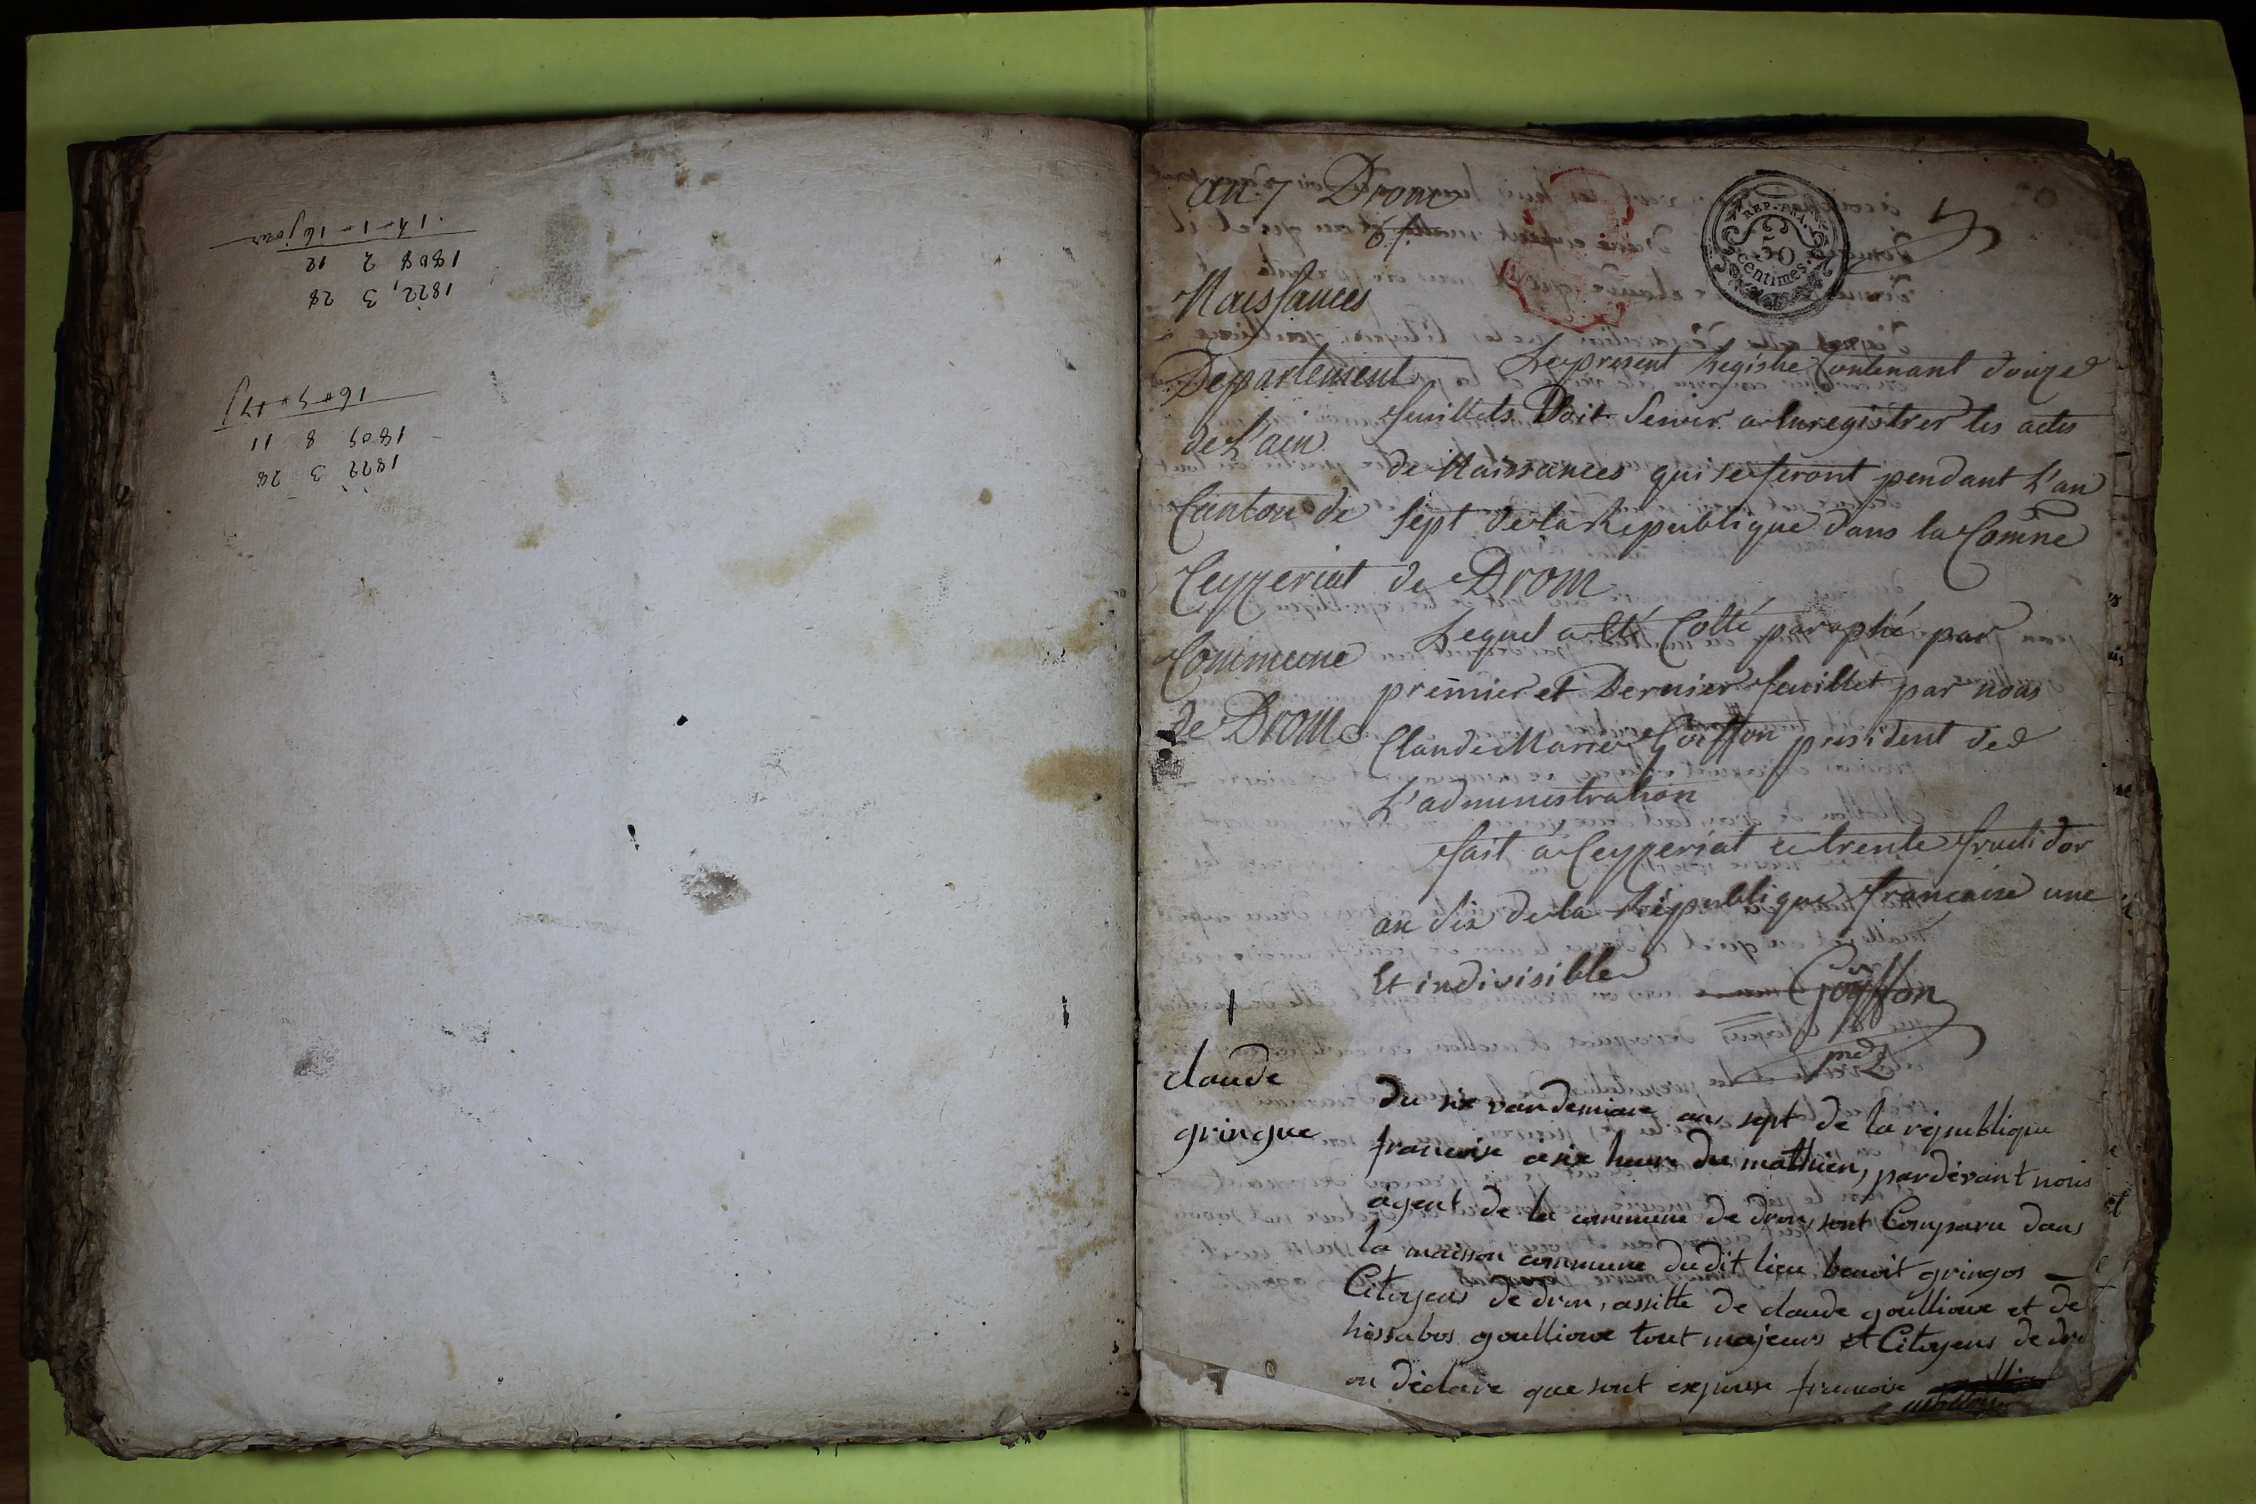 1822 3 28
1809 8 11
1822, 3 28
1808 2 12
14 - 1 - 16 jour
an 7 Drom
REP. FRA.
50
centimes.
Naissances
Departement
de L'ain
Canton de
Ceyzeriat
Commune
de Drom
Le present Registre Contenant douze
feuillets Doit Servir a Enregistrer les actes
de Naissances qui se feront pendant L'an
sept de la Republique dans la Comne
de Drom
Lequel a été Cotté paraphé par
premier et Dernier feuillet par nous
Claude Marie Goiffon president de
L'administration
fait à Ceyzeriat ce trente fructidor
an six de la République francaise une
Et indivisible
Goiffon
1
claude
gringue
du six vandemiare an sept de la republique
francoise a six heure du mathien, pardevant nous
agent de la commune de drom, sont Comparu dans
la maison commune dudit lieu benoit gringos
Citoyens de drom, assitte de claude goullioux et de
goullioux tout majeurs et Citoyens de dro
on declare que sont expouse francoise